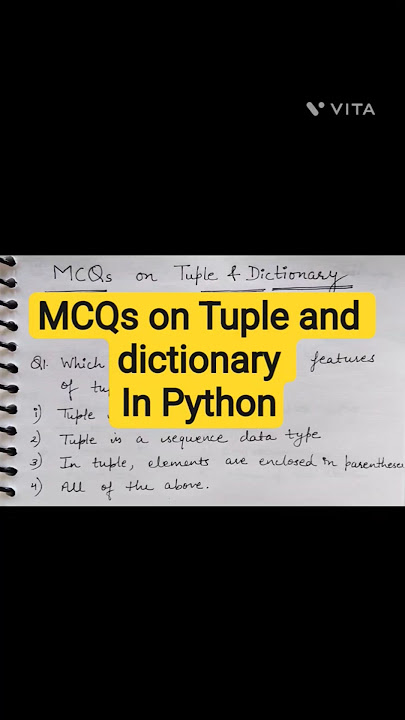 VITA
MCQs on Tuple & Dictionary
MCQs on Tuple and
dictionary
In Python
Q1. Which features
of tu
1) Tuple
2) Tuple is a sequence data type
3) In tuple, elements are enclosed in parentheses
4) All of the above.